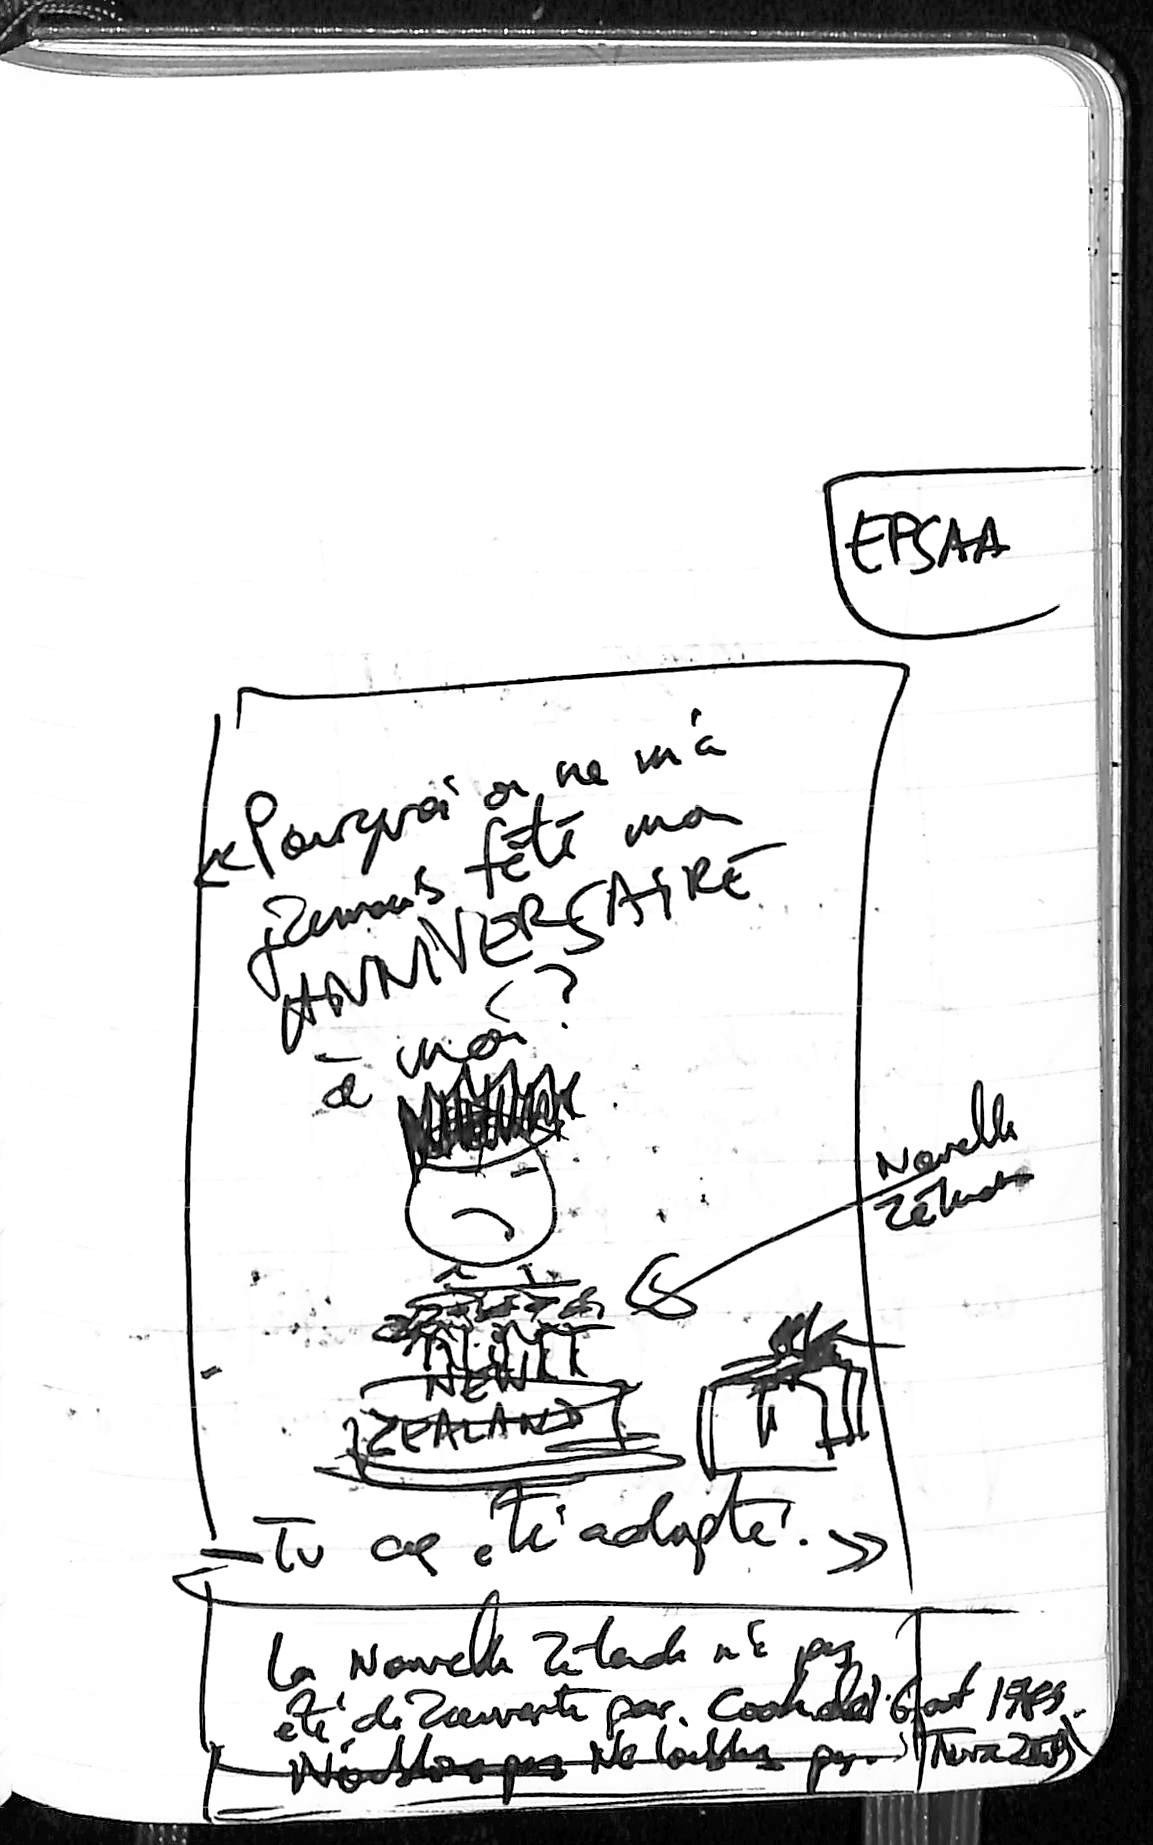 EPSAA
« Pourquoi on ne m'a
jamais fêté mon
ANNIVERSAIRE
à moi ?
Nouvelle
Zélande
NEW
ZEALAND
— Tu as été adopté. »
La Nouvelle Zélande n'a pas
été découverte par Cook